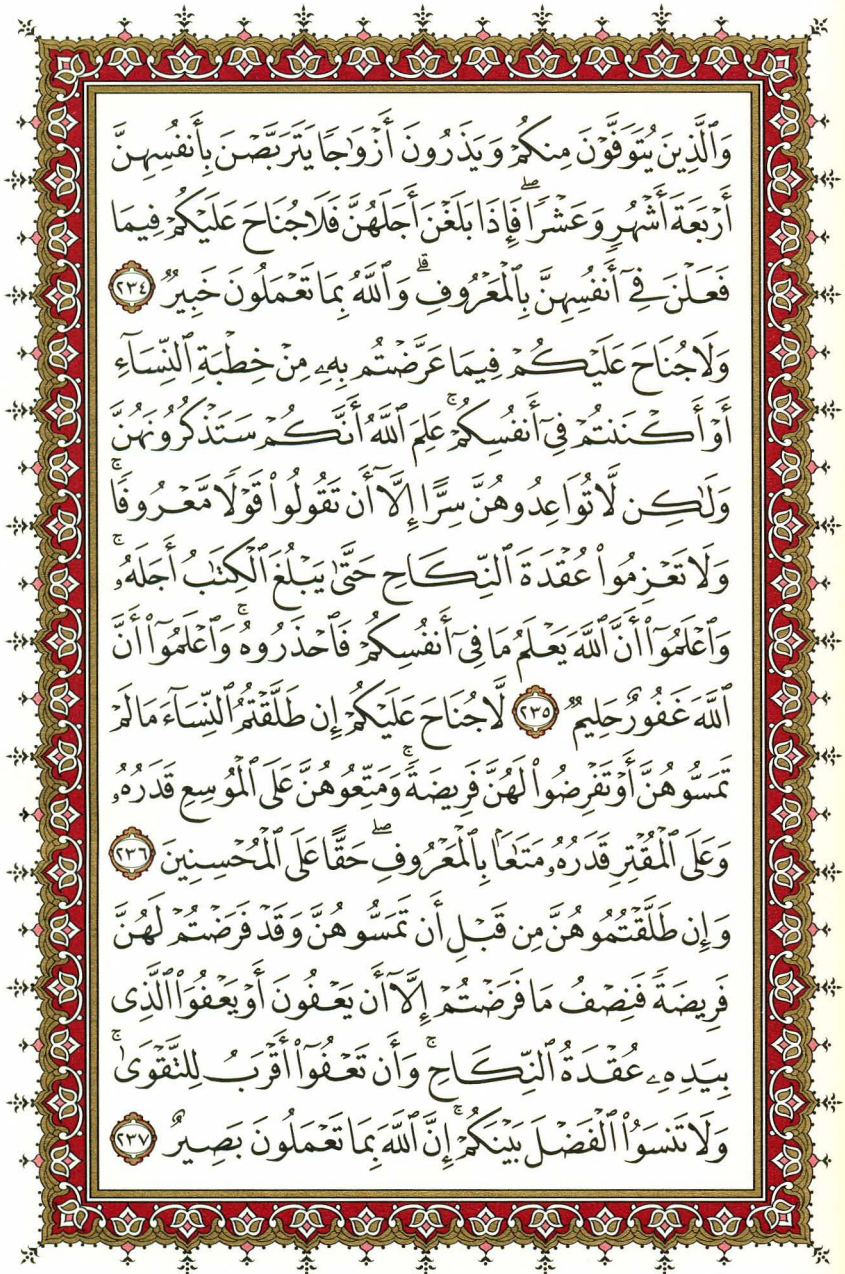 وَٱلَّذِينَ يُتَوَفَّوۡنَ مِنكُمۡ وَيَذَرُونَ أَزۡوَٰجٗا يَتَرَبَّصۡنَ بِأَنفُسِهِنَّ
أَرۡبَعَةَ أَشۡهُرٖ وَعَشۡرٗاۖ فَإِذَا بَلَغۡنَ أَجَلَهُنَّ فَلَا جُنَاحَ عَلَيۡكُمۡ فِيمَا
فَعَلۡنَ فِيٓ أَنفُسِهِنَّ بِٱلۡمَعۡرُوفِۗ وَٱللَّهُ بِمَا تَعۡمَلُونَ خَبِيرٞ ٢٣٤
وَلَا جُنَاحَ عَلَيۡكُمۡ فِيمَا عَرَّضۡتُم بِهِۦ مِنۡ خِطۡبَةِ ٱلنِّسَآءِ
أَوۡ أَكۡنَنتُمۡ فِيٓ أَنفُسِكُمۡۚ عَلِمَ ٱللَّهُ أَنَّكُمۡ سَتَذۡكُرُونَهُنَّ
وَلَٰكِن لَّا تُوَاعِدُوهُنَّ سِرًّا إِلَّآ أَن تَقُولُواْ قَوۡلٗا مَّعۡرُوفٗاۚ
وَلَا تَعۡزِمُواْ عُقۡدَةَ ٱلنِّكَاحِ حَتَّىٰ يَبۡلُغَ ٱلۡكِتَٰبُ أَجَلَهُۥۚ
وَٱعۡلَمُوٓاْ أَنَّ ٱللَّهَ يَعۡلَمُ مَا فِيٓ أَنفُسِكُمۡ فَٱحۡذَرُوهُۚ وَٱعۡلَمُوٓاْ أَنَّ
ٱللَّهَ غَفُورٌ حَلِيمٞ ٢٣٥ لَّا جُنَاحَ عَلَيۡكُمۡ إِن طَلَّقۡتُمُ ٱلنِّسَآءَ مَا لَمۡ
تَمَسُّوهُنَّ أَوۡ تَفۡرِضُواْ لَهُنَّ فَرِيضَةٗۚ وَمَتِّعُوهُنَّ عَلَى ٱلۡمُوسِعِ قَدَرُهُۥ
وَعَلَى ٱلۡمُقۡتِرِ قَدَرُهُۥ مَتَٰعَۢا بِٱلۡمَعۡرُوفِۖ حَقًّا عَلَى ٱلۡمُحۡسِنِينَ ٢٣٦
وَإِن طَلَّقۡتُمُوهُنَّ مِن قَبۡلِ أَن تَمَسُّوهُنَّ وَقَدۡ فَرَضۡتُمۡ لَهُنَّ
فَرِيضَةٗ فَنِصۡفُ مَا فَرَضۡتُمۡ إِلَّآ أَن يَعۡفُونَ أَوۡ يَعۡفُوَاْ ٱلَّذِي
بِيَدِهِۦ عُقۡدَةُ ٱلنِّكَاحِۚ وَأَن تَعۡفُوٓاْ أَقۡرَبُ لِلتَّقۡوَىٰۚ
وَلَا تَنسَوُاْ ٱلۡفَضۡلَ بَيۡنَكُمۡۚ إِنَّ ٱللَّهَ بِمَا تَعۡمَلُونَ بَصِيرٞ ٢٣٧